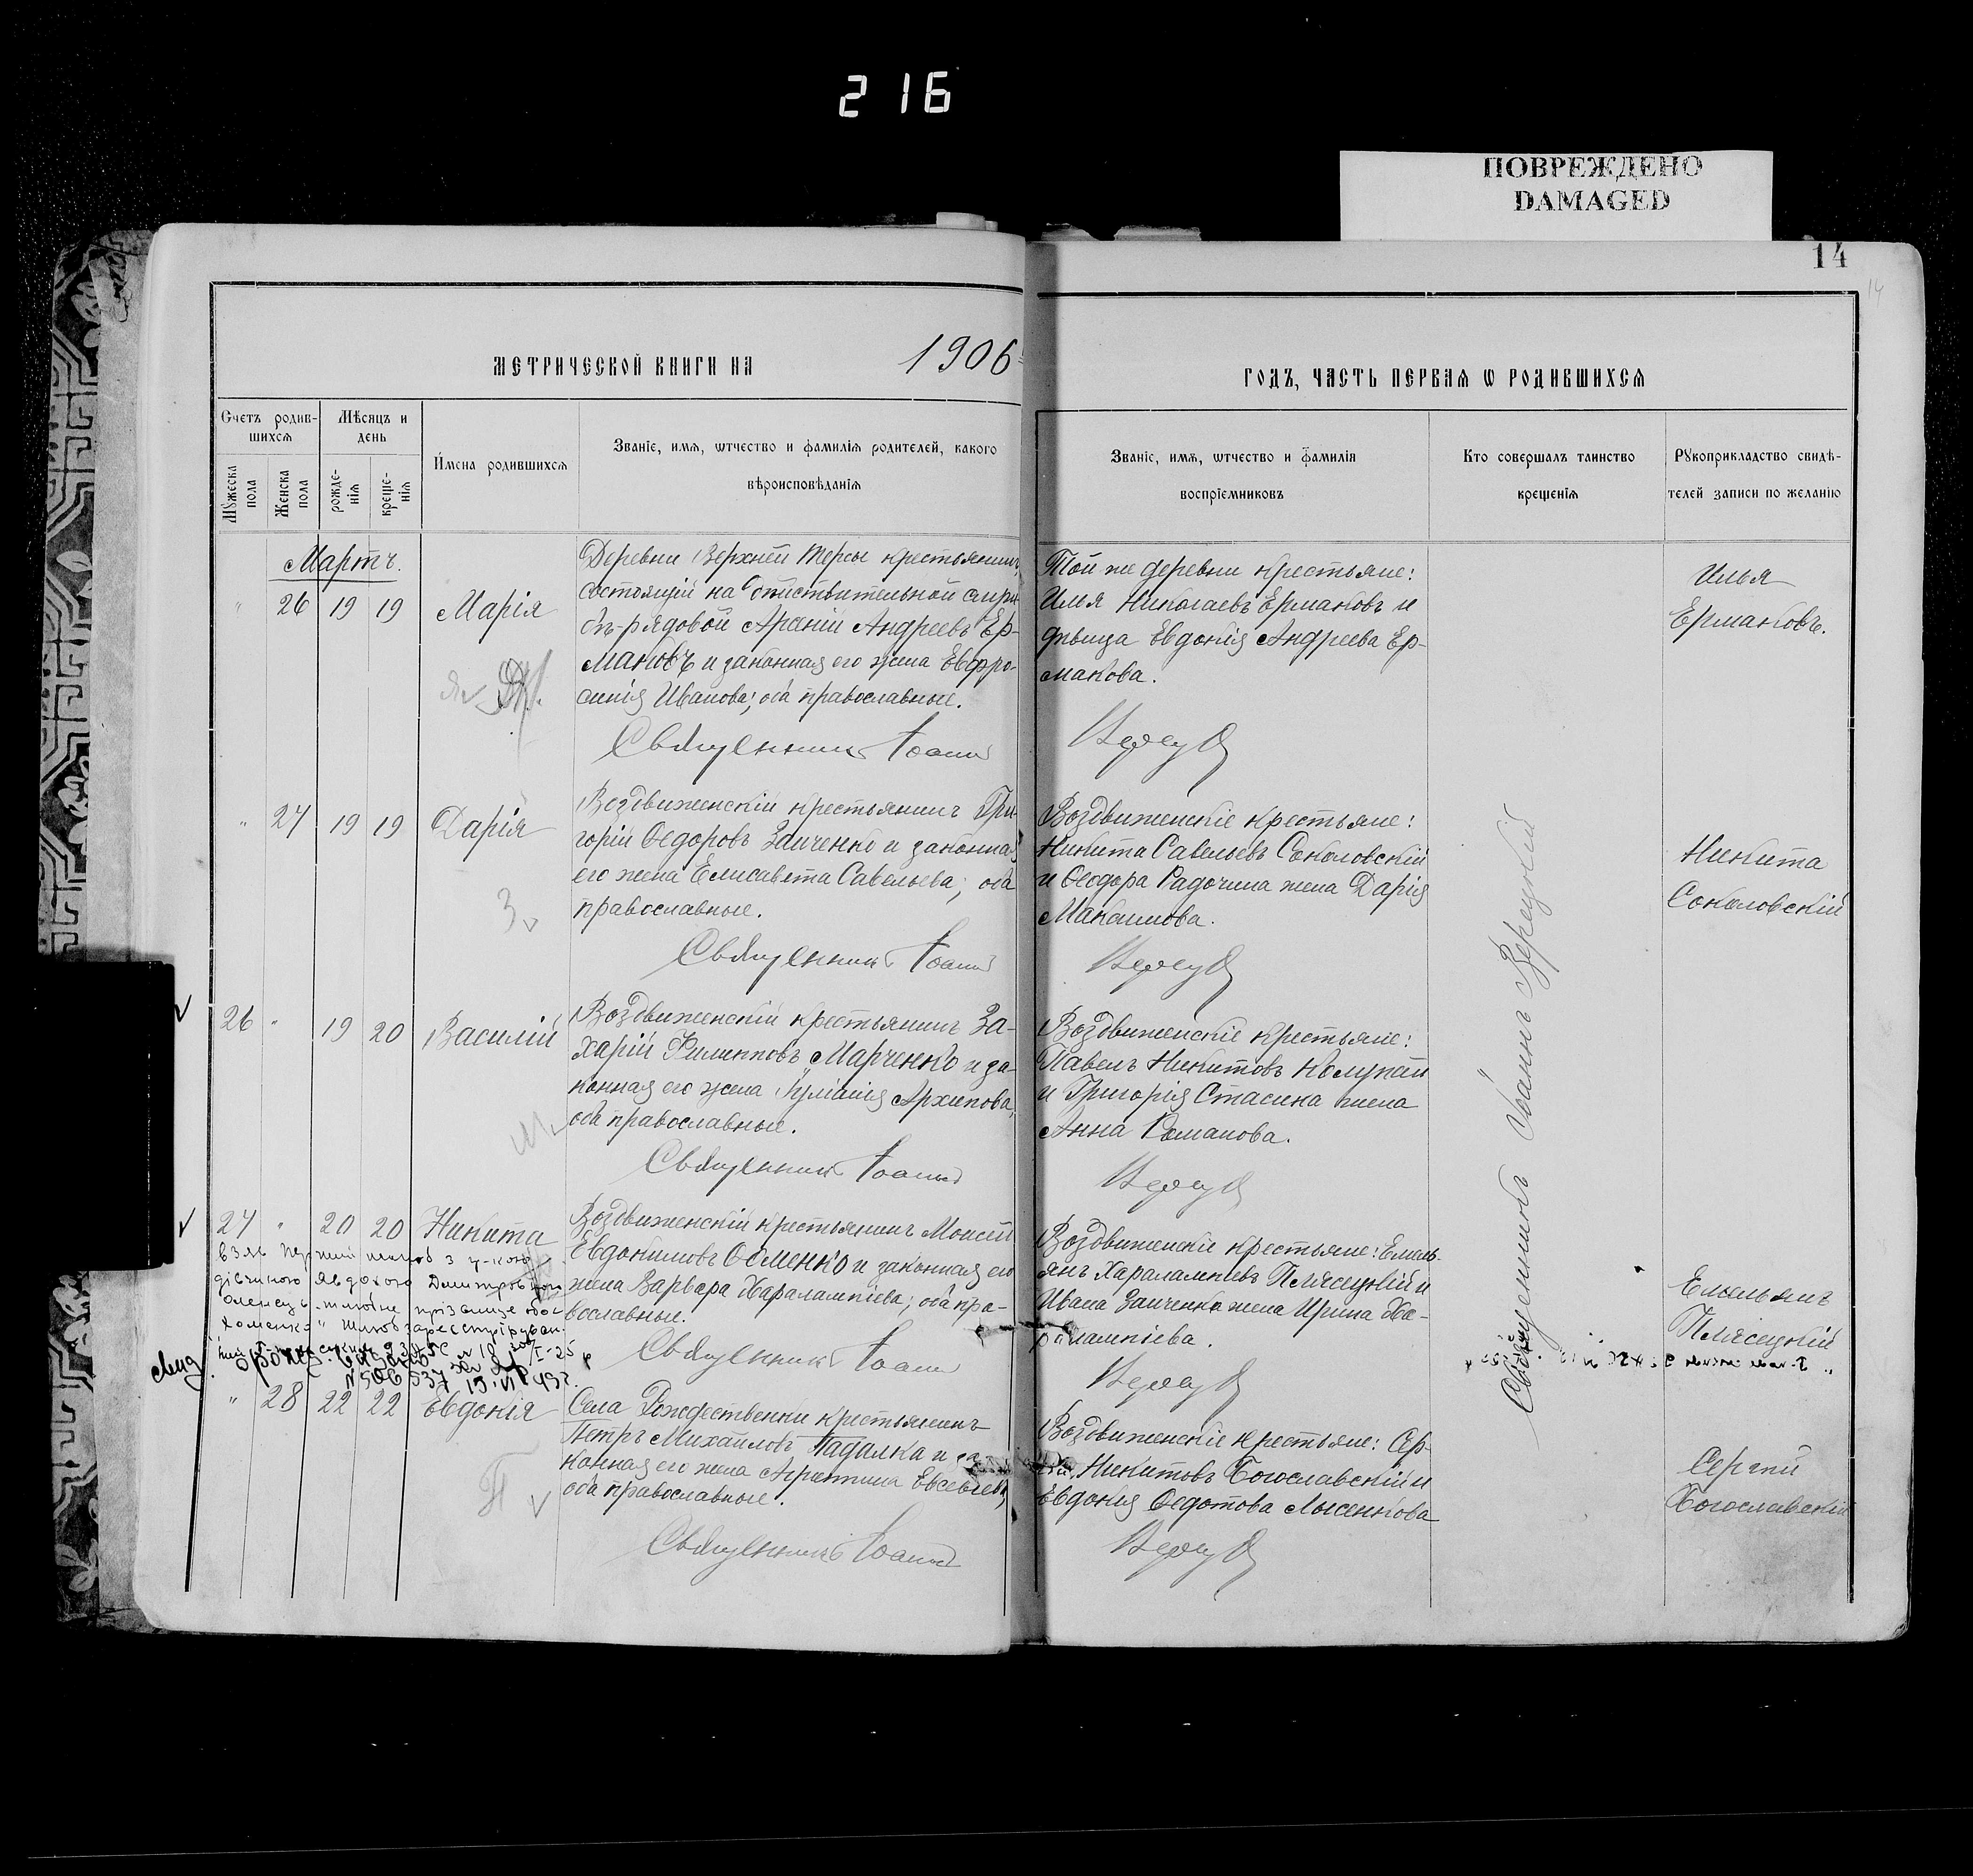 216
ПОВРЕЖДЕНО
DAMAGED
14
14
МЕТРИЧЕСКОЙ КНИГИ НА 1906
ГОДЪ, ЧАСТЬ ПЕРВАЯ Ѡ РОДИВШИХСЯ
Счетъ родив-
шихся
Мѣсяцъ и
день
Мужеска пола
Женска пола
рожде-
нія
креще-
нія
Имена родившихся
Званіе, имя, ѡтчество и фамилія родителей, какого
вѣроисповѣданія
Званіе, имя, ѡтчество и фамилія
воспріемниковъ
Кто совершалъ таинство
крещенія
Рукоприкладство свидѣ-
телей записи по желанію
Мартъ.
" 26 19 19 Марія
Деревни Верхней Терсы крестьянинъ,
состоящій на дѣйствительной
рядовой Арсеній Андреевъ Ер-
маковъ и законная его жена Евфро-
синія Иванова; оба православные.
Священникъ Іоаннъ
Той же деревни крестьяне:
Илья Николаевъ Ермаковъ и
дѣвица Евдокія Андреева Ер-
макова.
Илья
Ермаковъ.
" 27 19 19 Дарія
Воздвиженскій крестьянинъ Гри-
горій Ѳедоровъ Заиченко и законная
его жена Елисавета Савельева; оба
православные.
Священникъ Іоаннъ
Воздвиженскіе крестьяне:
Никита Савельевъ Соколовскій
и Ѳеодора Радочина жена Дарія
Максимова.
Никита
Соколовскій
26 " 19 20 Василій
Воздвиженскій крестьянинъ За-
харій Филипповъ Марченко и за-
конная его жена Іуліанія Архипова,
оба православные.
Священникъ Іоаннъ
Воздвиженскіе крестьяне:
Павелъ Никитовъ Колупай
и Григорія Стасина жена
Анна Романова.
27 " 20 20 Никита
Воздвиженскій крестьянинъ Моисей
Евдокимовъ и законная его
жена Варвара Харалампіева; оба пра-
вославные.
Священникъ Іоаннъ
Воздвиженскіе крестьяне: Емель-
янъ Харалампіевъ Плясецкій и
Ивана Заиченка жена Ирина Ха-
ралампіева.
Емельянъ
Плясецкій
" 28 22 22 Евдокія
Села Рождественки крестьянинъ
Петръ Михайловъ Падалка и за-
конная его жена Агриппина Евсевіева,
оба православные.
Священникъ Іоаннъ
Воздвиженскіе крестьяне: Сер-
гій Никитовъ Богославскій и
Евдокія Ѳедотова Лысенкова
Сергій
Богославскій
Священникъ Іоаннъ Верецкій